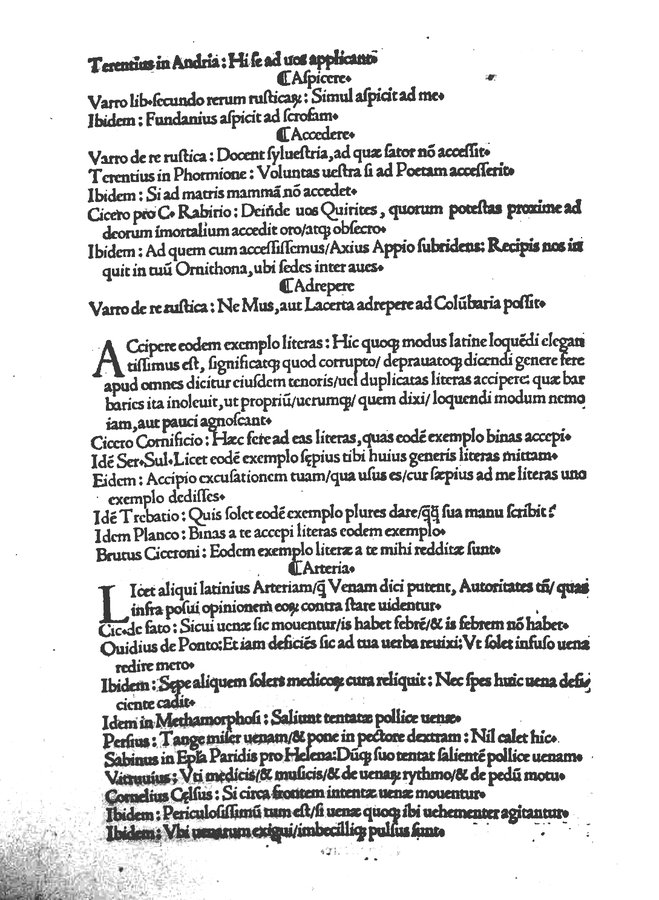 Terentius in Andria : Hi se ad uos applicant.
¶Aſpicere.
Varro lib.ſecundo rerum ruſticaꝝ : Simul aſpicit ad me.
Ibidem : Fundanius aſpicit ad ſcrofam.
¶Accedere.
Varro de re ruſtica : Docent ſylueſtria,ad quæ ſator nõ acceſſit.
Terentius in Phormione : Voluntas ueſtra ſi ad Poetam acceſſerit.
Ibidem : Si ad matris mammã nõ accedet.
Cicero pro C. Rabirio : Deiñde uos Quirites , quorum poteſtas proxime ad
deorum ĩmortalium accedit oro/atqꝫ obſecro.
Ibidem : Ad quem cum acceſſiſſemus/Axius Appio ſubridens: Recipis nos in
quit in tuũ Ornithona,ubi ſedes inter aues.
¶Adrepere
Varro de re ruſtica : Ne Mus,aut Lacerta adrepere ad Colũbaria poſſit.
ACcipere eodem exemplo literas : Hic quoqꝫ modus latine loquẽdi elegan
tiſſimus eſt, ſignificatqꝫ quod corrupto/ deprauatoqꝫ dicendi genere fere
apud omnes dicitur eiuſdem tenoris/uel duplicatas literas accipere: quæ bar
baries ita inoleuit,ut propriũ/uerumqꝫ/ quem dixi/ loquendi modum nemo
iam,aut pauci agnoſcant.
Cicero Cornificio : Hæc fere ad eas literas,quas eodẽ exemplo binas accepi.
Idẽ Ser.Sul.Licet eodẽ exemplo ſępius tibi huius generis literas mittam.
Eidem : Accipio excuſationem tuam/qua uſus es/cur ſæpius ad me literas uno
exemplo dediſſes.
Idẽ Trebatio : Quis ſolet eodẽ exemplo plures dare/q̃q̃ ſua manu ſcribit?
Idem Planco : Binas a te accepi literas eodem exemplo.
Brutus Ciceroni : Eodem exemplo literæ a te mihi redditæ ſunt.
¶Arteria.
LIcet aliqui latinius Arteriam/q̃ Venam dici putent, Autoritates tñ/ quas
infra poſui opinionem eoꝝ contra ſtare uidentur.
Cic.de fato : Sicui uenæ ſic mouentur/is habet febrẽ/& is febrem nõ habet.
Ouidius de Ponto:Et iam deficiẽs ſic ad tua uerba reuixi:Vt ſolet infuſo uena
redire mero.
Ibidem : Sępe aliquem ſolers medicoꝝ cura reliquit : Nec ſpes huic uena defi
ciente cadit.
Idem in Methamorphoſi : Saliunt tentatæ pollice uenæ.
Perſius : Tange miſer uenam/& pone in pectore dextram : Nil calet hic.
Sabinus in Ep̃ſa Paridis pro Helena:Dũqꝫ ſuo tentat ſalientẽ pollice uenam.
Vitruuius : Vti medicis/& muſicis/& de uenaꝝ rythmo/& de pedũ motu.
Cornelius Cęlſus : Si circa frontem intentæ uenæ mouentur.
Ibidem : Periculoſiſſimũ tum eſt/ſi uenæ quoqꝫ ibi uehementer agitantur.
Ibidem : Vbi uenarum exigui/imbecilliqꝫ pulſus ſunt.